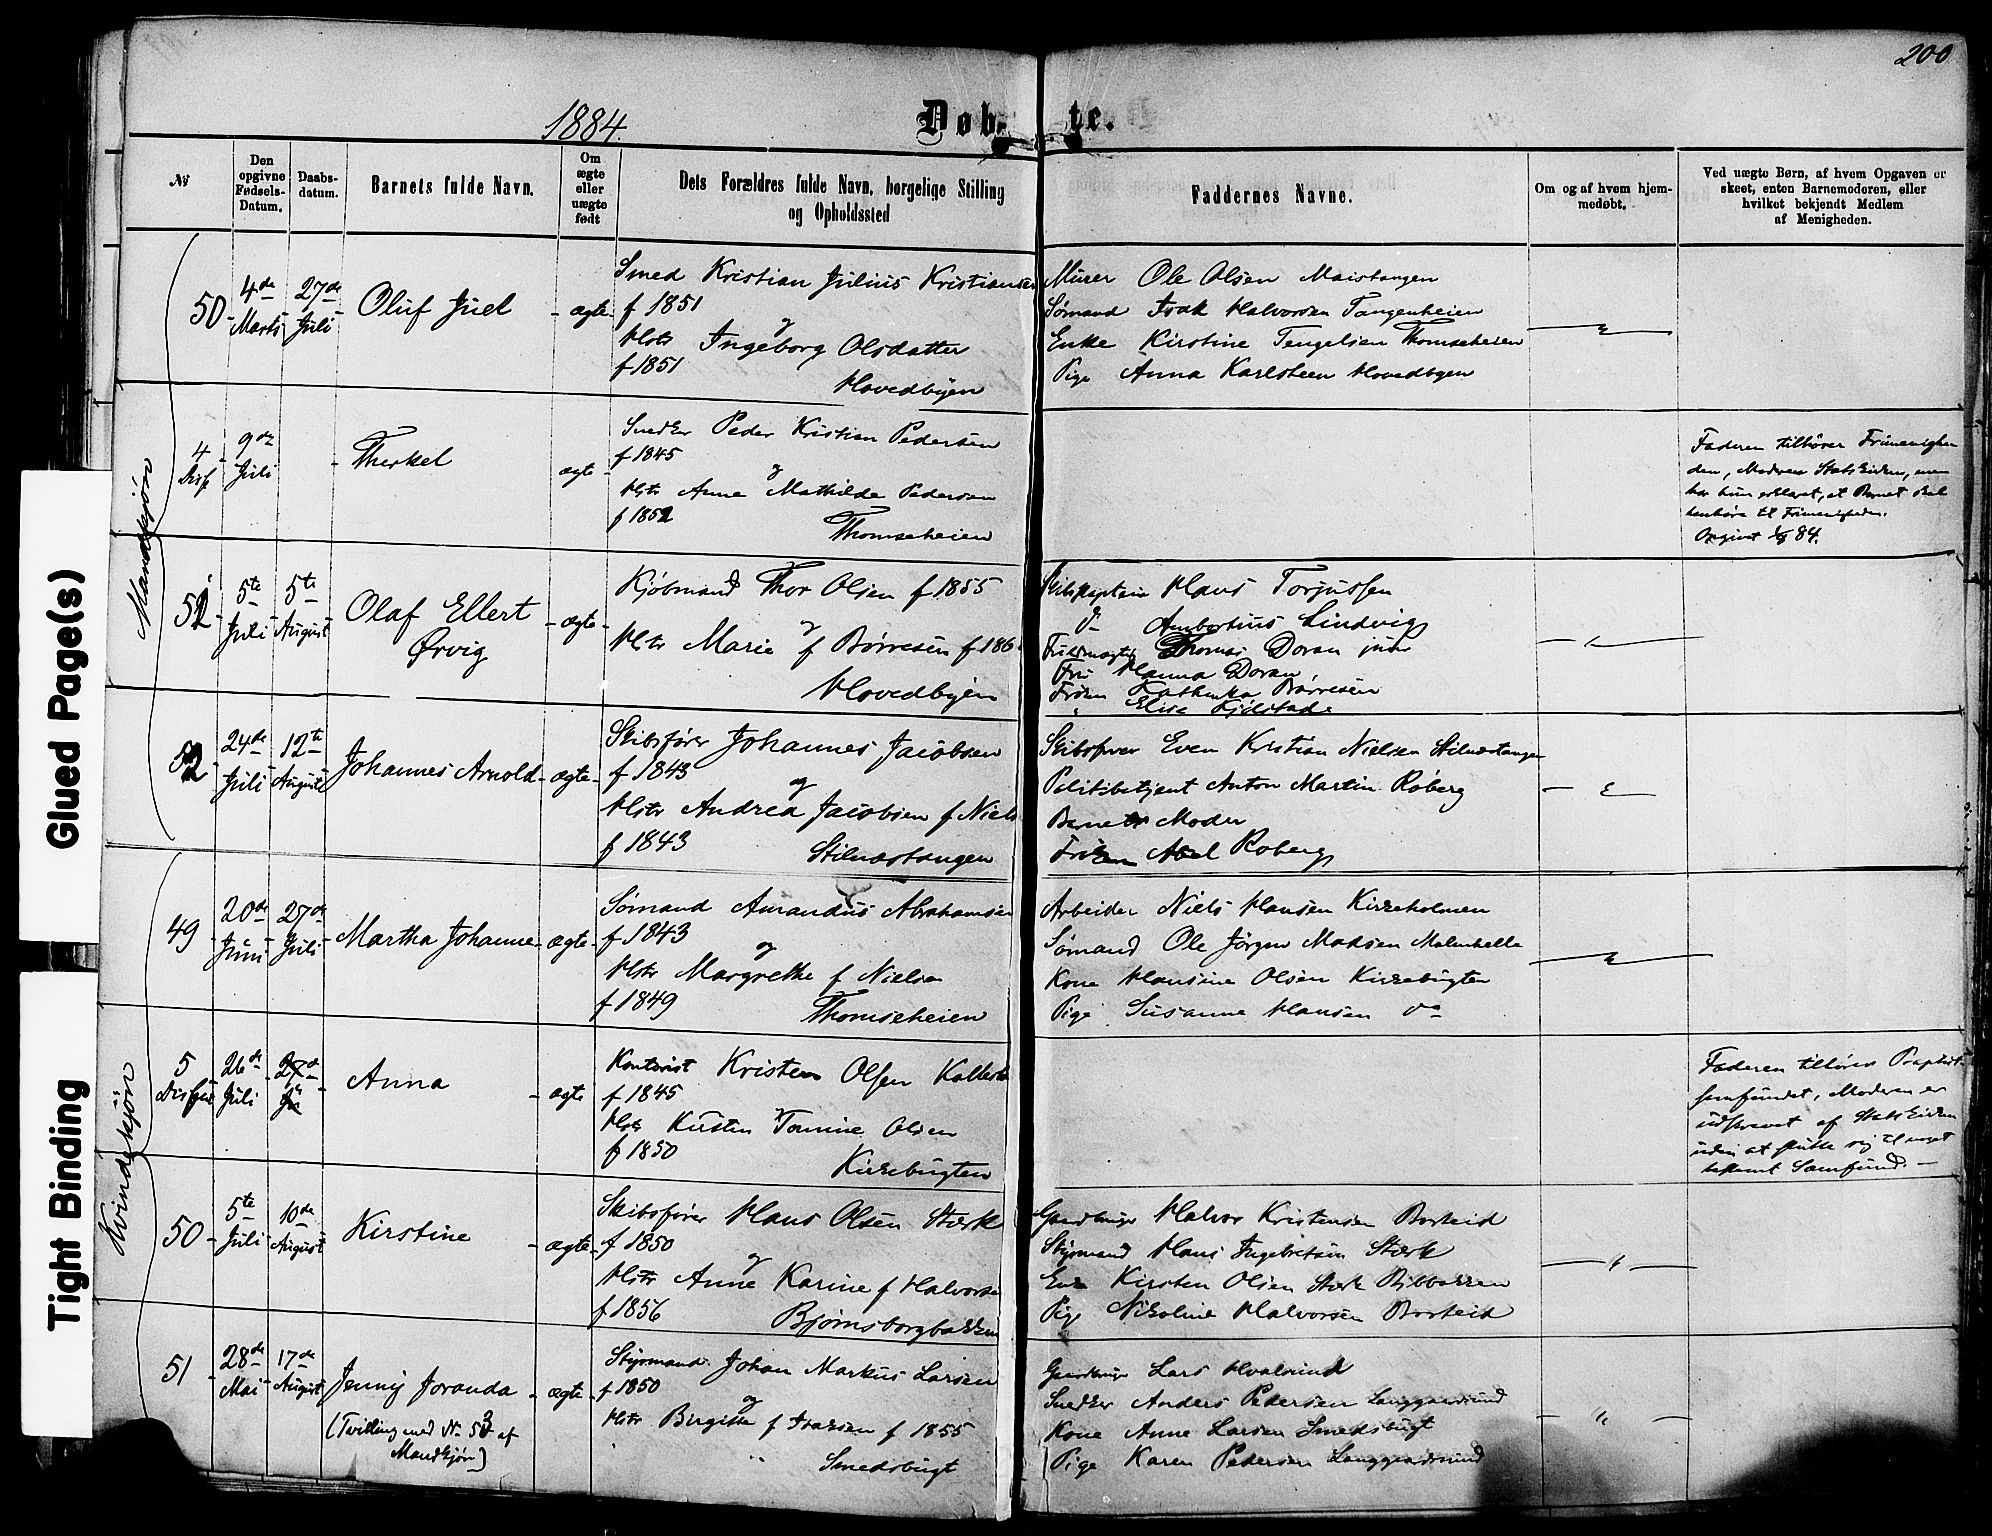 200
1884.
Døbte.
№
Den opgivne Fødsels-Datum.
Daabs-datum.
Barnets fulde Navn.
Om ægte eller uægte født
Dets Forældres fulde Navn, borgelige Stilling og Opholdssted
Faddernes Navne.
Om og af hvem hjem-medøbt.
Ved uægte Børn, af hvem Opgaven er skeet, enten Barnemoderen, eller hvilket bekjendt Medlem af Menigheden.
Glued Page(s)
Tight Binding
Mandkjøn
50 4de Marts 27de Juli Oluf Juel ægte
Smed Kristian Julius Kristiansen
f 1851
og
Hstr Ingeborg Olsdatter
f 1851
Hovedbyen
Murer Ole Olsen Maistangen
Sømand Isak Halvorsen Tangenheien
Enke Kirstine Tengelsen Thomseheien
Pige Anna Karlsteen Hovedbyen
4 Diss 9de Juli Therkel ægte
Snedker Peder Kristian Pedersen
f 1845
og
Hstr Anne Mathilde Pedersen
f 1852
Thomseheien
Faderen tilhører Frimenighe-
den, Moderen Statskirken, men
har hun erklæret, at Barnet skal
henhøre til Frimenigheden.
Opgivet 84.
51 5te Juli 5te August Olaf Ellert
Ørvig ægte
Kjøbmand Thor Olsen f 1855
og
Hstr Marie f Børresen f 186
Hovedbyen
Skibskaptein Hans Torjussen
do Ambortius Lindvig
Fuldmægtig Thomas Doran jun
Fru Hanna Doran
Frøken Kathinka Børresen
" Elise Fjdstade
52 24de Juli 12te August Johannes Arnold ægte
Skibsfører Johannes Jacobsen
f 1843
og
Hstr Andrea Jacobsen f Niels
f 1843
Stilnæstangen
Skibsfører Even Kristian Nielsen Stilnæstangen
Politibetjent Anton Martin Roberg
Barnets Moder
Frøken Abel Roberg
Kvindekjøn
49 20de Juni 27de Juli Martha Johanne ægte
Sømand Amandus Abrahamsen
f 1843
og
Hstr Margrethe f Nielsen
f 1849
Thomseheien
Arbeider Niels Hansen Kirkeholmen
Sømand Ole Jørgen Madsen Malmhella
Kone Hansine Olsen Kirkebugten
Pige Susanne Hansen do
5 26de Juli Anna ægte
Kontorist Kristen Olsen
f 1845
og
Hstr Kirsten Tomine Olsen
f 1850
Kirkebugten
Faderen tilhører Baptist-
samfundet, Moderen er
udtraadt af Statskirken
uden at slutte sig til noget
bekjent Samfund.
50 5te Juli 10de August Kirstine ægte
Skibsfører Hans Olsen Stærk
f 1850
og
Hstr Anne Karine f Halvorsen
f 1856
Bjørnsborgbakken
Gaardbruger Halvor Kristensen Borteid
Styrmand Hans Ingebretsen Stærk
Enke Kirsten Olsen Stærk
Pige Nikoline Halvorsen Borteid
51 28de Mai 17de August Jenny Joranda ægte
(Tvilling med No 53 af
Mandkjøn)
Styrmand Johan Markus Larsen
f 1850
og
Hstr Birgitte f Isaksen f 1855
Smedsbugt
Gaardbruger Lars Hvalsund
Snedker Anders Pedersen Langgaardsund
Kone Anne Larsen Smedsbugt
Pige Karen Pedersen Langgaardsund